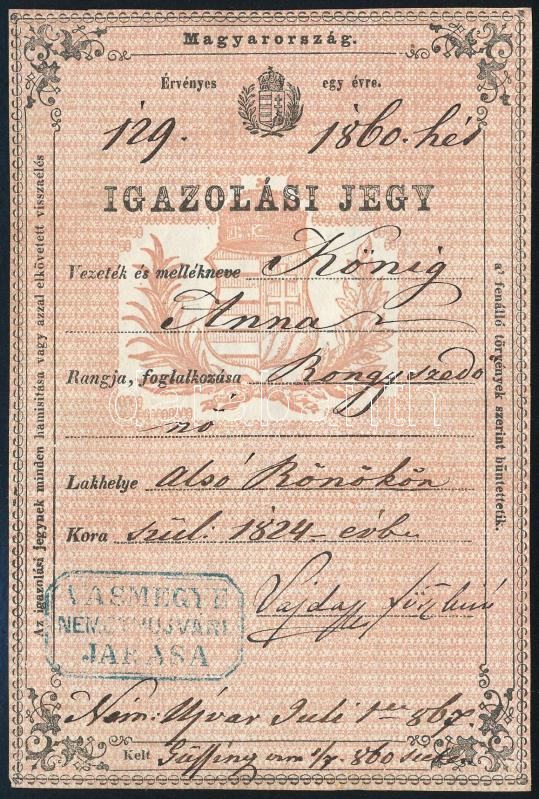 Magyarország.
Érvényes egy évre.
129. 1860. hés
IGAZOLÁSI JEGY
Vezeték és mellékneve König
Anna
Rangja, foglalkozása Rongyszedő
nő
Lakhelye alsó Rönökön
Kora szül: 1824. évbe
Vajda
VASMEGYE
NEMETHUJVARI
JARASA
Ném: Ujvár Juli 1
Kelt Güssing am 1/7 860
Az igazolási jegynek minden hamisítása vagy azzal elkövetett visszaélés
a' fenálló törvények szerint büntettetik.